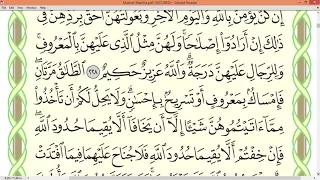 إِن كُنَّ يُؤْمِنَّ بِٱللَّهِ وَٱلْيَوْمِ ٱلْأَخِرِ وَبُعُولَتُهُنَّ أَحَقُّ بِرَدِّهِنَّ فِى
ذَٰلِكَ إِنْ أَرَادُوٓا۟ إِصْلَٰحًا وَلَهُنَّ مِثْلُ ٱلَّذِى عَلَيْهِنَّ بِٱلْمَعْرُوفِ
وَلِلرِّجَالِ عَلَيْهِنَّ دَرَجَةٌ وَٱللَّهُ عَزِيزٌ حَكِيمٌ ٢٢٨ ٱلطَّلَٰقُ مَرَّتَانِ
فَإِمْسَاكٌۢ بِمَعْرُوفٍ أَوْ تَسْرِيحٌۢ بِإِحْسَٰنٍ وَلَا يَحِلُّ لَكُمْ أَن تَأْخُذُوا۟
مِمَّآ ءَاتَيْتُمُوهُنَّ شَيْـًٔا إِلَّآ أَن يَخَافَآ أَلَّا يُقِيمَا حُدُودَ ٱللَّهِ
فَإِنْ خِفْتُمْ أَلَّا يُقِيمَا حُدُودَ ٱللَّهِ فَلَا جُنَاحَ عَلَيْهِمَا فِيمَا ٱفْتَدَتْ